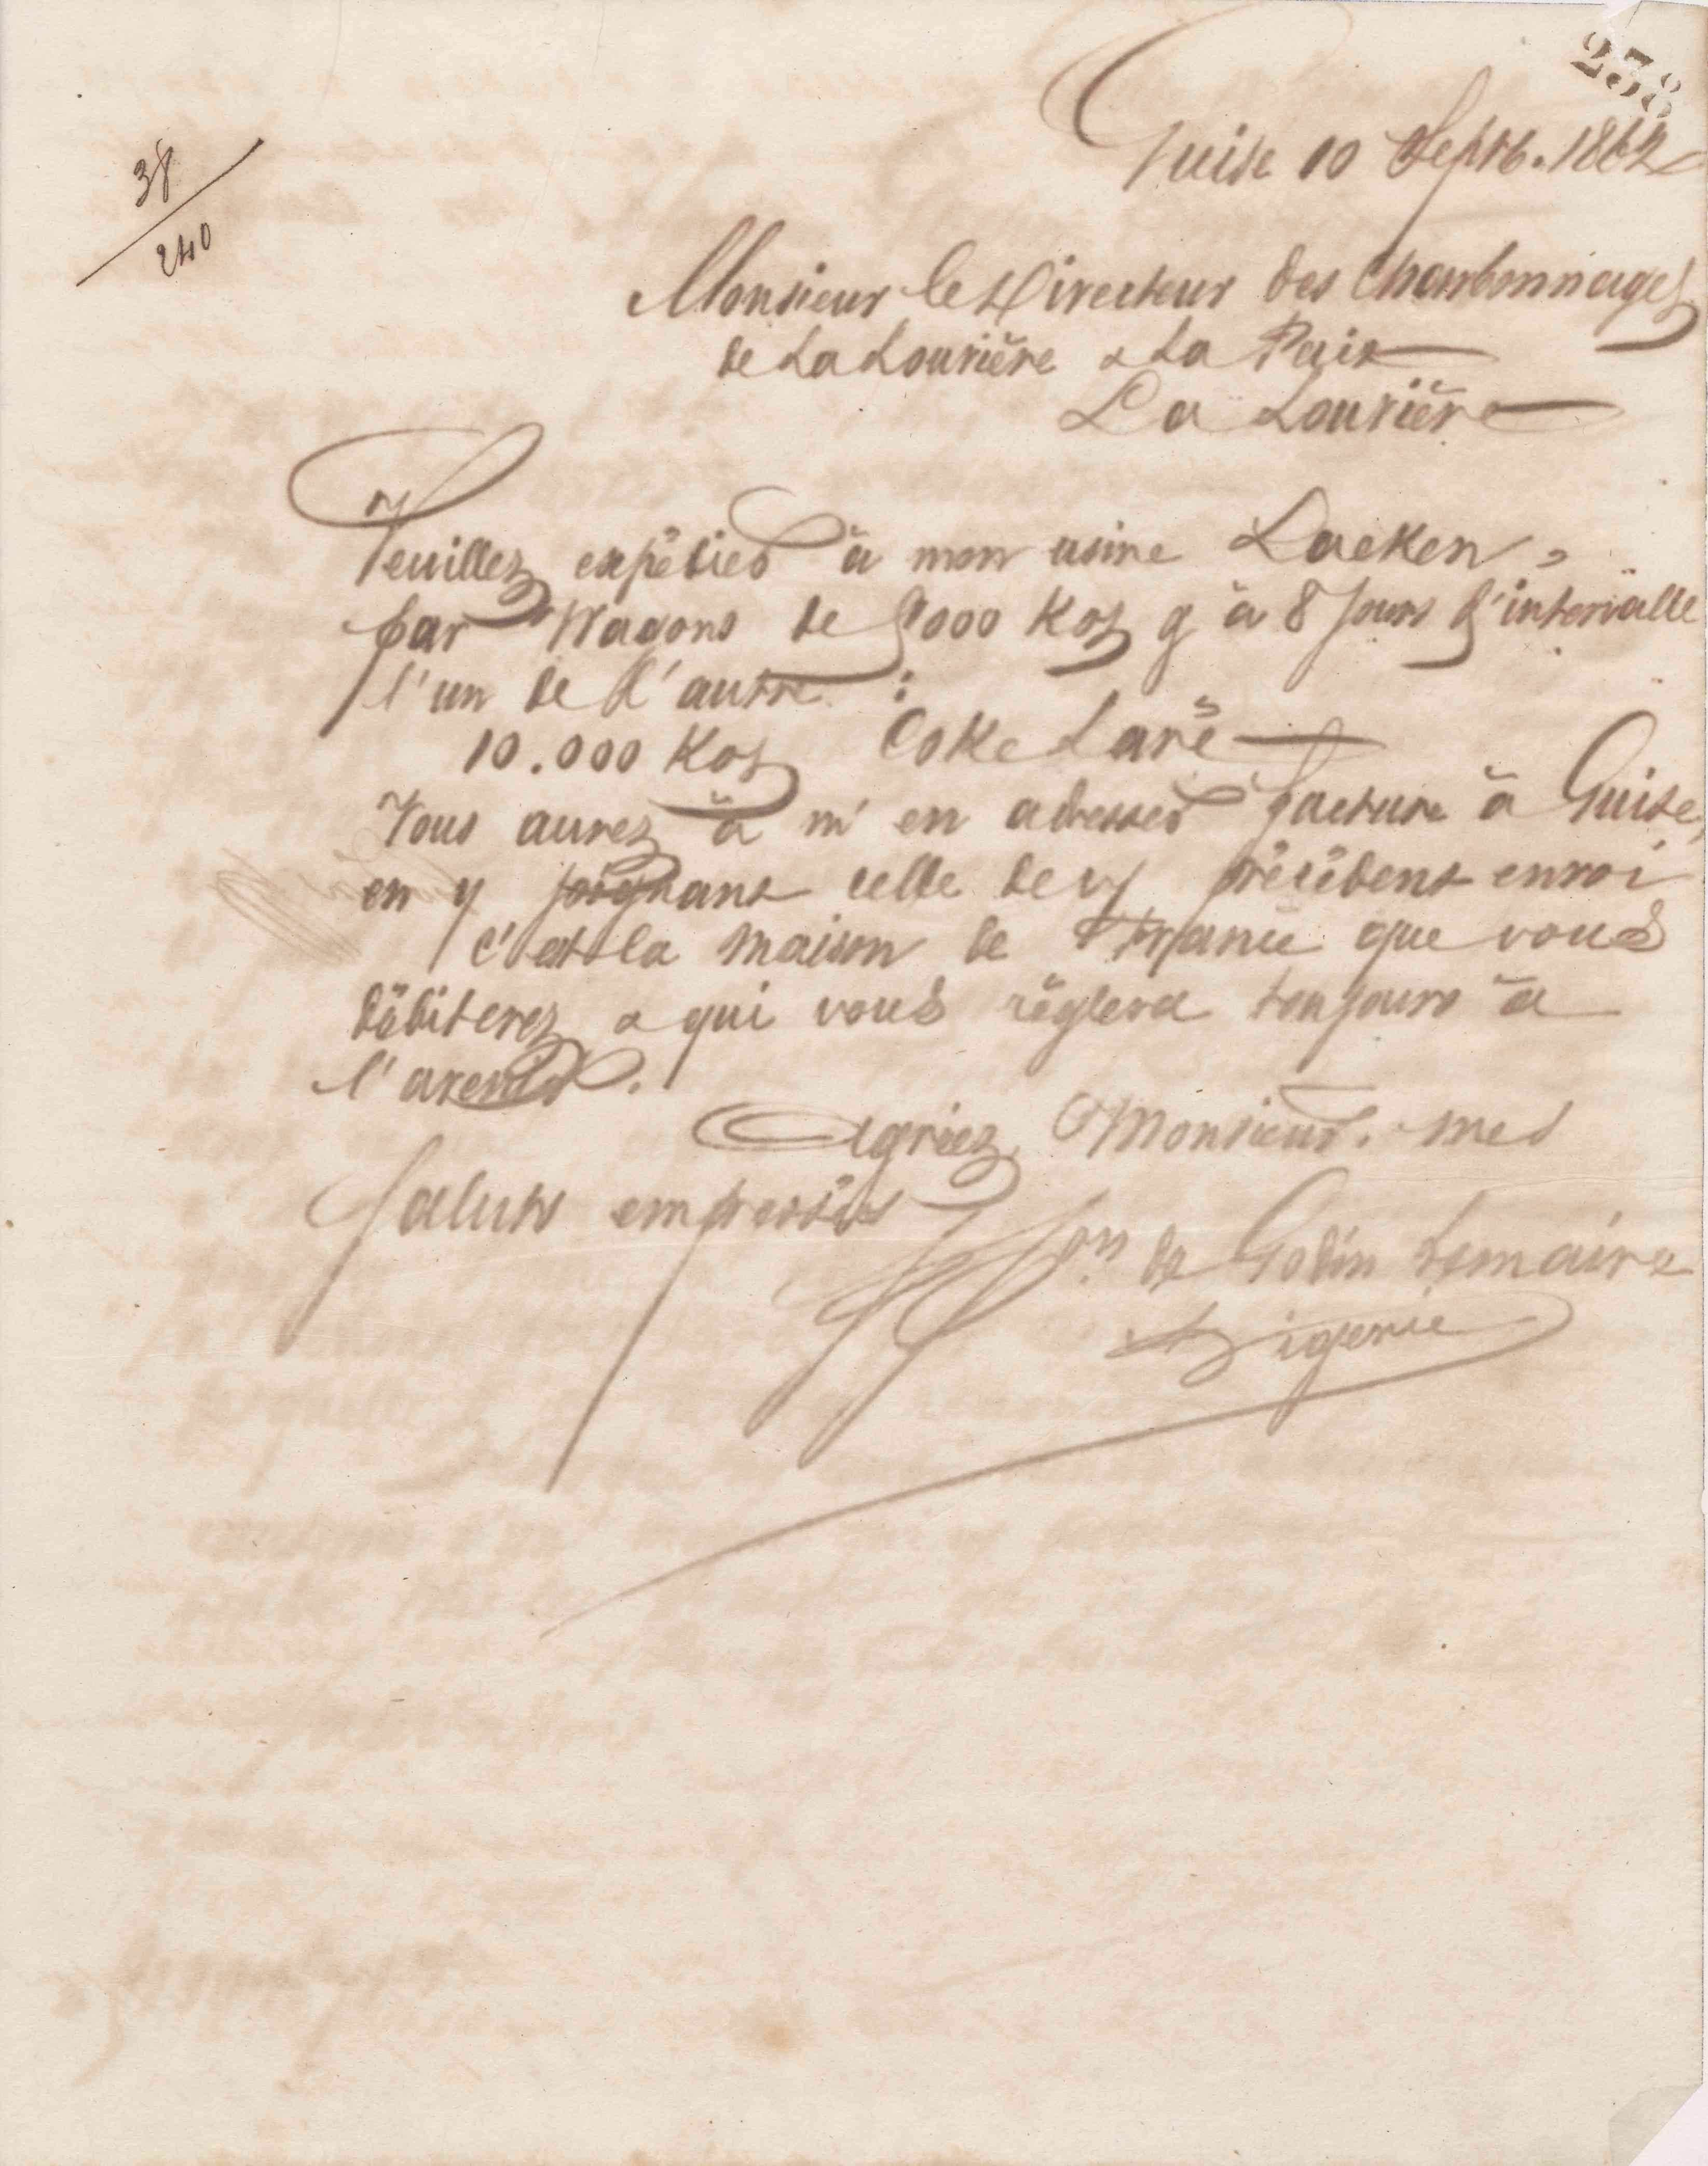 238
38
240
Guise 10 Septb. 1862
Monsieur le Directeur des Charbonnages
de La Louvière & La Paix
La Louvière
Veuillez expédier à mon usine Laeken,
par Wagons de 5000 Kos g à 8 jours d'intervalle
l'un de l'autre :
10.000 Kos Coke Lavé
Vous aurez à m'en adresser facture à Guise,
en y joignant celle de v/ précédent envoi
c'est la maison de France que vous
débiterez & qui vous règlera toujours à
l'avenir.
Agréez, Monsieur. mes
Saluts empressés
de Godin Lemaire